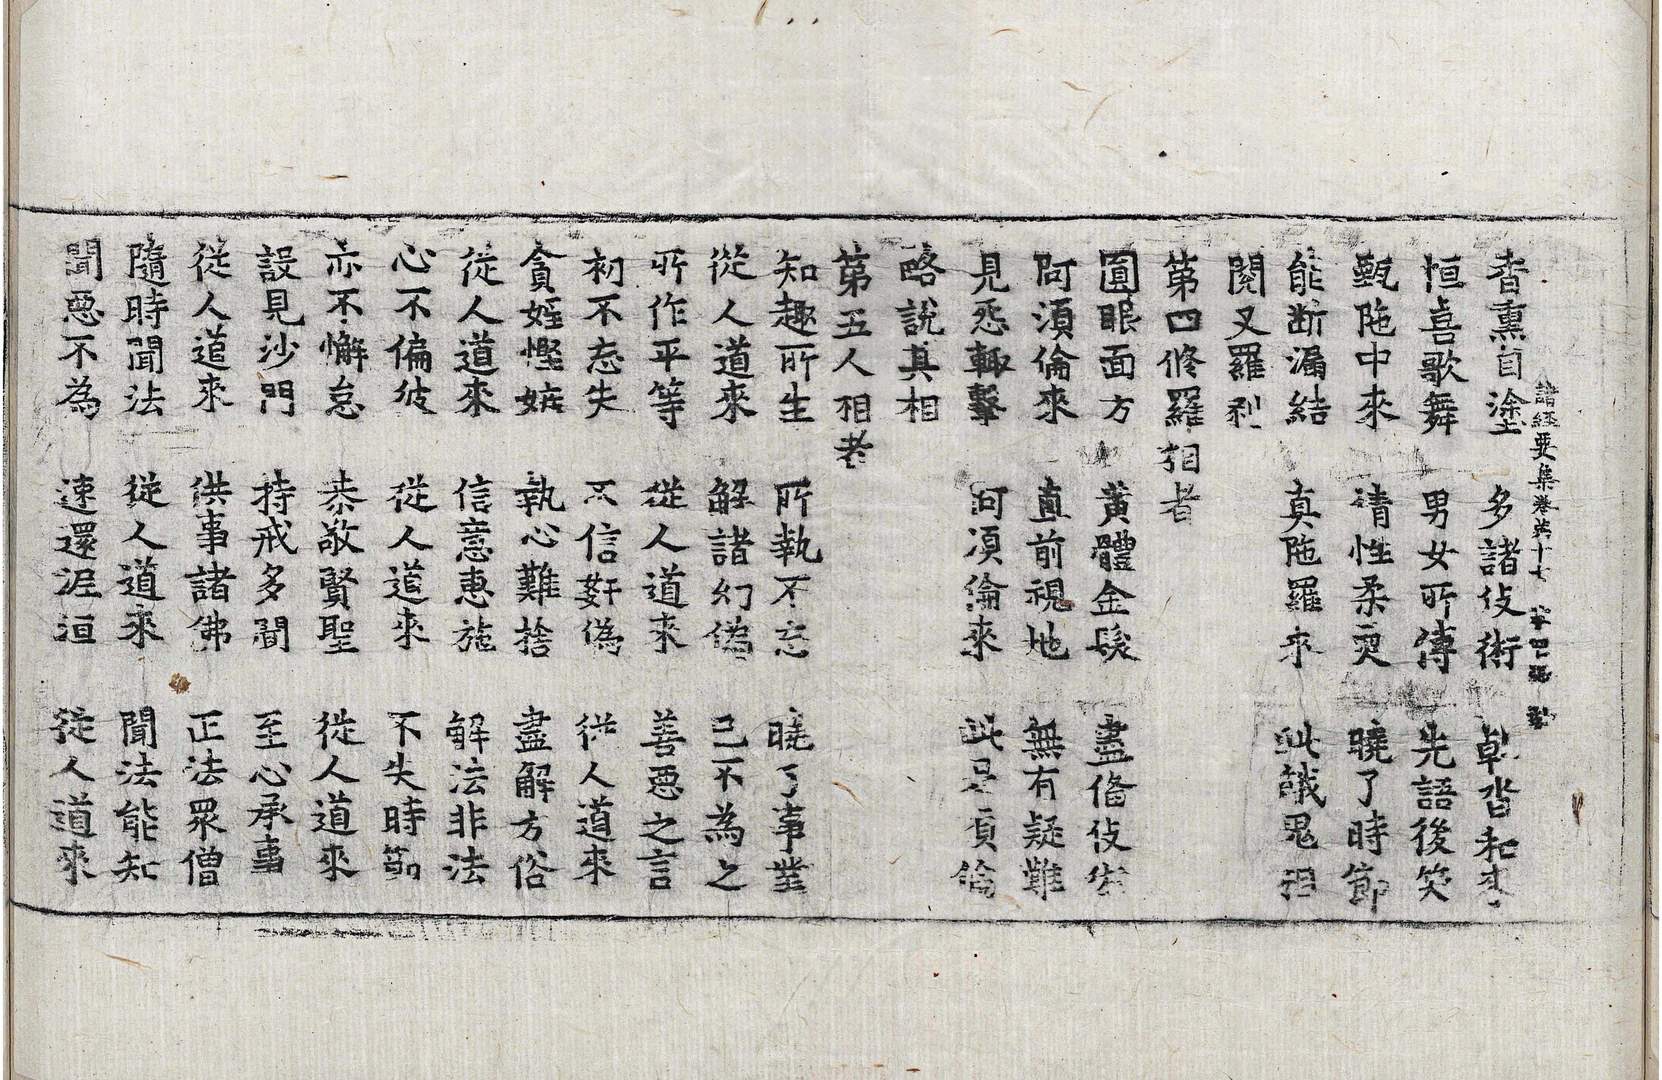 諸經要集卷第十七　第四張
香熏自塗　多諸伎術　乹沓和來
恒喜歌舞　男女所傳　先語後笑
甄陁中來　情性柔耎　曉了時節
能断漏結　真陁羅來　此餓鬼相
閱叉羅刹
第四修羅相者
圓眼面方　黃體金髮　盡俻伎術
阿湏倫來　直前視地　無有疑難
見怨輙擊　阿湏倫來　此是湏倫
略說其相
第五人相者
知趣所生　所執不忘　曉了事業
從人道來　解諸幻偽　己不為之
所作平等　從人道來　善惡之言
初不忘失　不信姧偽　從人道來
貪婬慳嫉　執心難捨　盡解方俗
從人道來　信意惠施　解法非法
心不偏彼　從人道來　不失時節
亦不懈怠　恭敬賢聖　從人道來
設見沙門　持戒多聞　至心承事
從人道來　供事諸佛　正法眾僧
隨時聞法　從人道來　聞法能知
聞惡不為　速還泥洹　從人道來